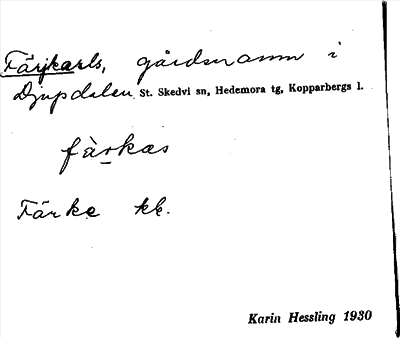 Färjkarls, gårdsnamn i
Djupdalen St. Skedvi sn, Hedemora tg, Kopparbergs l.
fàrkas
Färke kk.
Karin Hessling 1930